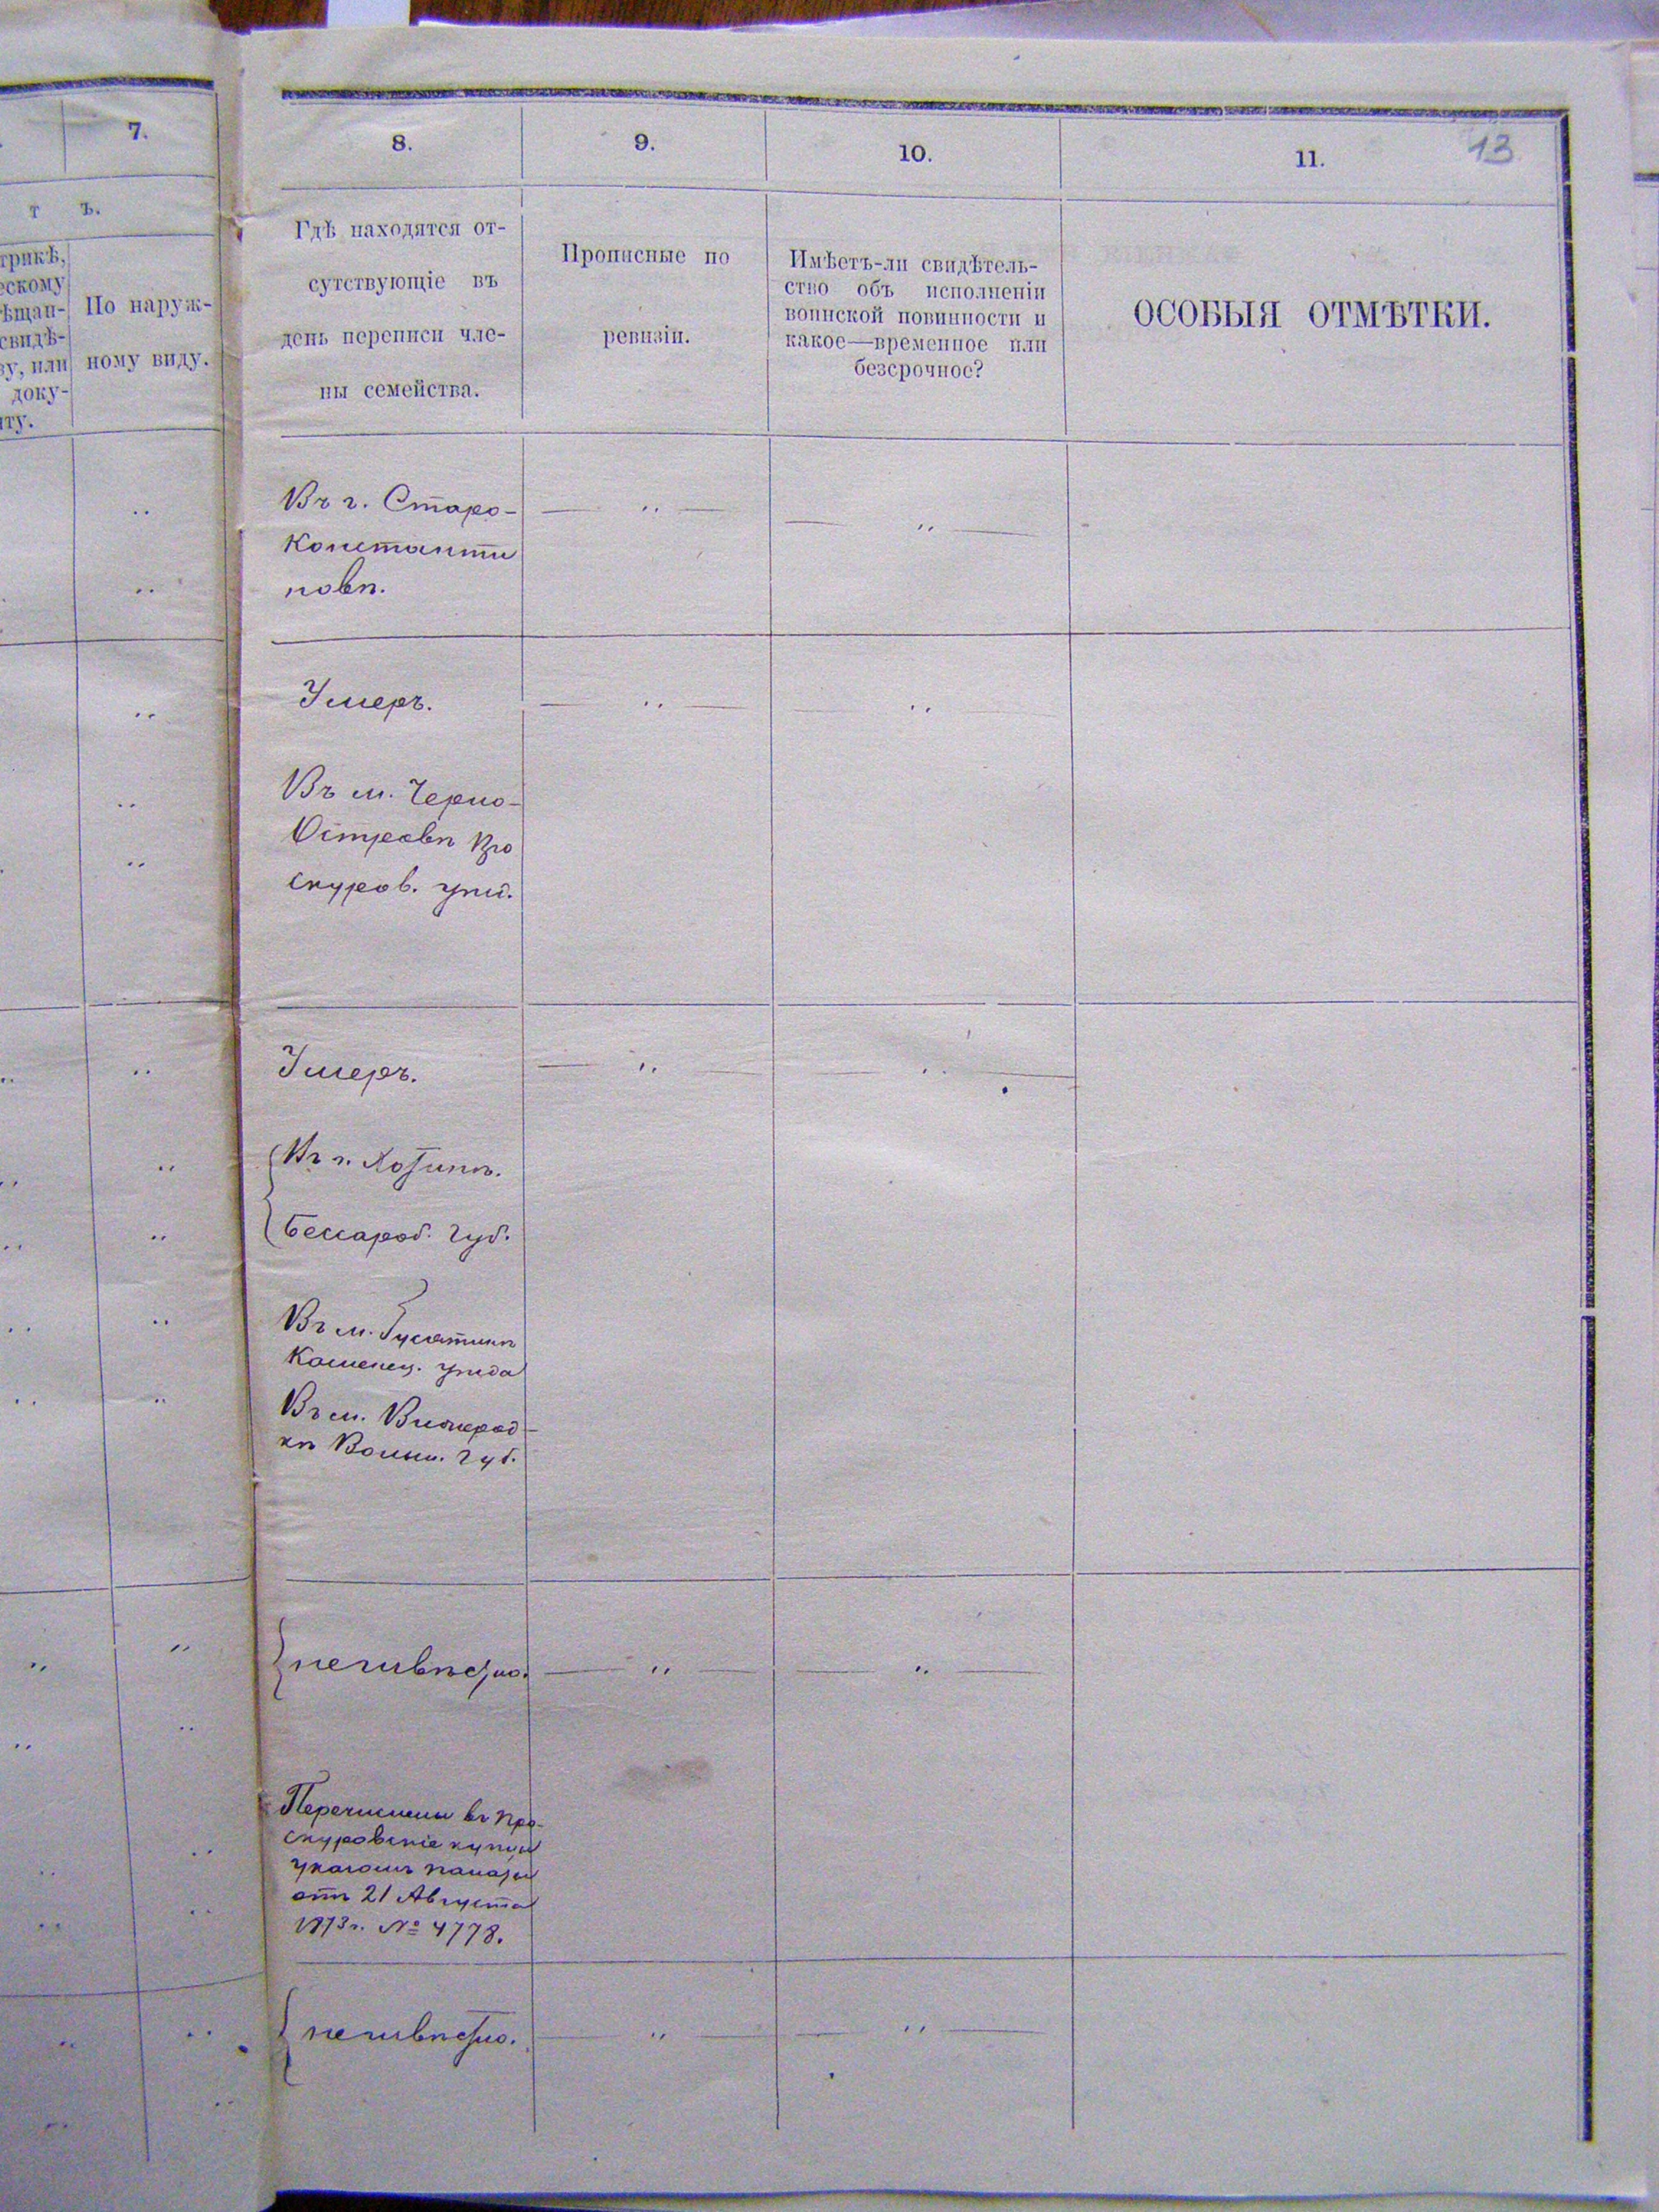 7.
т ъ.
трикѣ,
ескому
ѣщан-
свидѣ-
ву, или
доку-
нту.
По наруж-
ному виду.
8.
9.
10.
11.
13
Гдѣ находятся от-
сутствующіе въ
день переписи чле-
ны семейства.
Прописные по
ревизіи.
Имѣетъ-ли свидѣтель-
ство объ исполненіи
воинской повинности и
какое—временное или
безсрочное?
ОСОБЫЯ ОТМѢТКИ.
Въ г. Старо-
Константи
новѣ.
Умеръ.
Въ м. Черно-
Островѣ Про
скуров. уѣзд.
Умеръ.
Въ г. Хотинѣ.
Бессараб. Губ.
Въ м. Гусятинѣ
Каменец. уѣзда
Въ м. Вишгород-
кѣ Волын. Губ.
неизвѣстно.
Перечислены въ Про-
скуровскіе купцы
указомъ палаты
отъ 21 Августа
1873 г. № 4778.
неизвѣстно.